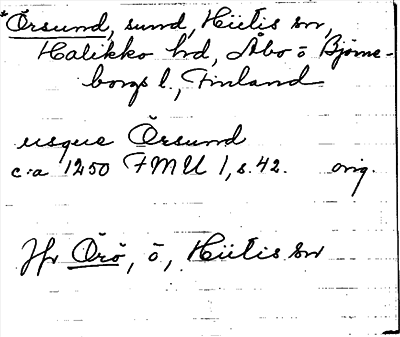 *Örsund, sund, Hiitis sn,
Halikko hd, Åbo o Björne-
borgs l., Finland
usque Örsund
c:a 1250 FMU 1, s. 42. orig.
Jfr Örö, ö, Hiitis sn